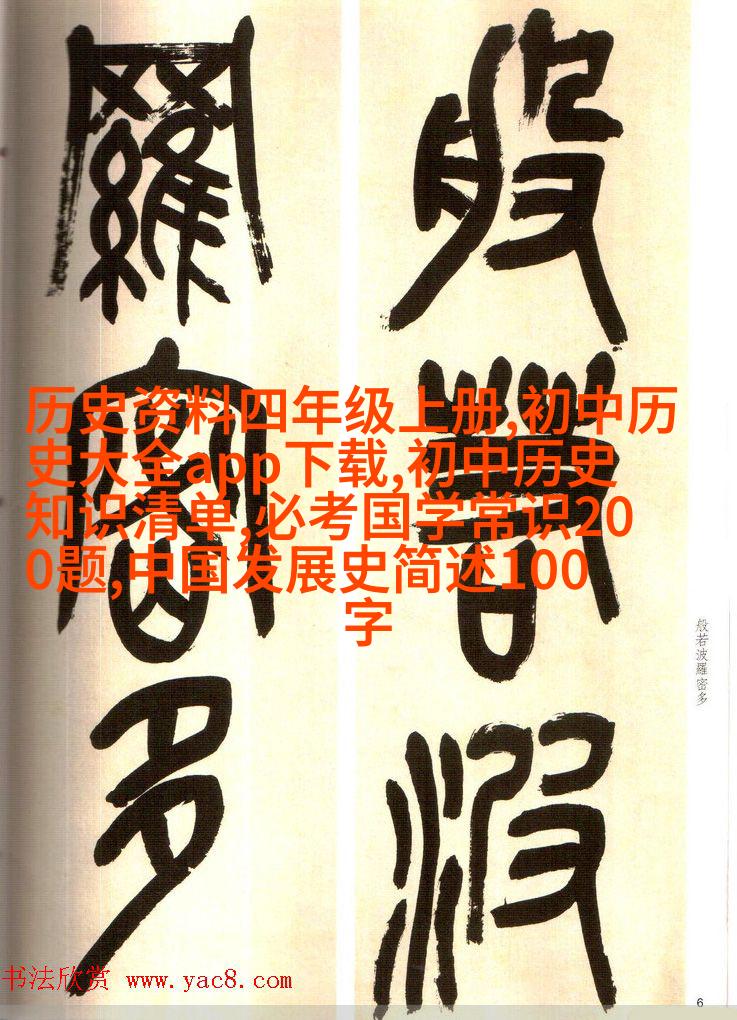 般若波
羅密多
历史资料四年级上册,初中历
史大全app下载,初中历史
知识清单,必考国学常识20
0题,中国发展史简述100
字
般若波羅密多
书法欣赏 www.yac8.com
6